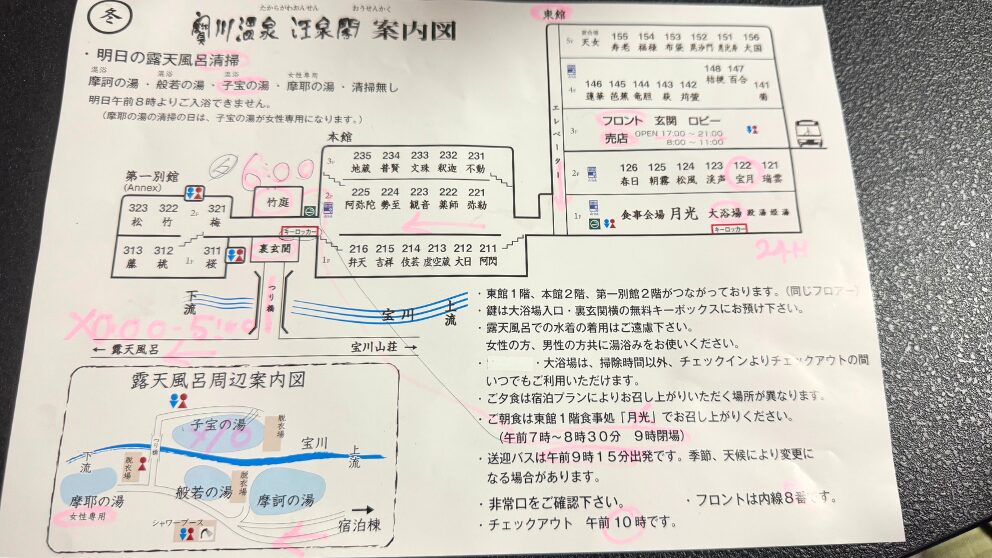 冬
たからがわおんせん おうせんかく
寶川温泉 汪泉閣 案内図
・明日の露天風呂清掃
混浴 混浴 混浴 女性専用
摩訶の湯・般若の湯・子宝の湯・摩耶の湯・清掃無し
明日午前8時よりご入浴できません。
(摩耶の湯の清掃の日は、子宝の湯が女性専用になります。)
東館
5F 天女 155 寿老 154 福禄 153 布袋 152 毘沙門 151 恵比寿 156 大国
148 桔梗 147 百合
4F 146 蓮華 145 芭蕉 144 竜胆 143 萩 142 苅萱 141 菊
3F フロント 玄関 ロビー
売店 OPEN 17:00~21:00
8:00~11:00
エレベーター
2F 126 春日 125 朝霧 124 松風 123 渓声 122 宝月 121 瑞雲
1F 食事会場 月光 大浴場 殿湯 姫湯
キーロッカー
24H
本館
3F 235 地蔵 234 普賢 233 文珠 232 釈迦 231 不動
2F 225 阿弥陀 224 勢至 223 観音 222 薬師 221 弥勒
1F 216 弁天 215 吉祥 214 伎芸 213 虚空蔵 212 大日 211 阿閦
第一別館
(Annex)
323 松 322 竹 2F 321 梅
313 藤 312 桃 1F 311 桜
6:00
竹庭
キーロッカー
裏玄関
つり橋
下流
宝川 上流
← 露天風呂 宝川山荘 →
・東館1階、本館2階、第一別館2階がつながっております。(同じフロアー)
・鍵は大浴場入口・裏玄関横の無料キーボックスにお預け下さい。
・露天風呂での水着の着用はご遠慮下さい。
女性の方、男性の方共に湯浴みをお使いください。
・大浴場は、掃除時間以外、チェックインよりチェックアウトの間
いつでもご利用いただけます。
・ご夕食は宿泊プランによりお召し上がりいただく場所が異なります。
・ご朝食は東館1階食事処「月光」でお召し上がりください。
(午前7時~8時30分 9時閉場)
・送迎バスは午前9時15分出発です。季節、天候により変更に
なる場合があります。
・非常口をご確認下さい。 ・フロントは内線8番です。
・チェックアウト 午前10時です。
露天風呂周辺案内図
子宝の湯
脱衣場
つり橋
宝川
上流
下流
脱衣場
摩耶の湯
女性専用
般若の湯
脱衣場
摩訶の湯
シャワーブース
宿泊棟